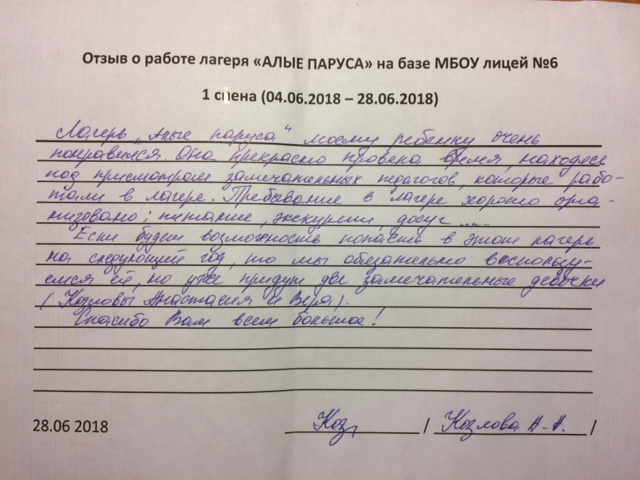 Отзыв о работе лагеря «АЛЫЕ ПАРУСА» на базе МБОУ лицей №6
1 смена (04.06.2018 – 28.06.2018)
Лагерь „Алые паруса“ моему ребенку очень
понравился. Она прекрасно провела время, находясь
под присмотром замечательных педагогов, которые рабо-
тали в лагере. Пребывание в лагере хорошо орга-
низовано: питание, экскурсии, досуг ....
Если будет возможность попасть в этот лагерь
на следующий год, то мы обязательно воспользу-
емся ей, но уже придут две замечательные девочки
(Козловы Анастасия и Вера).
Спасибо Вам всем большое!
28.06 2018 Коз / Козлова А.А. /